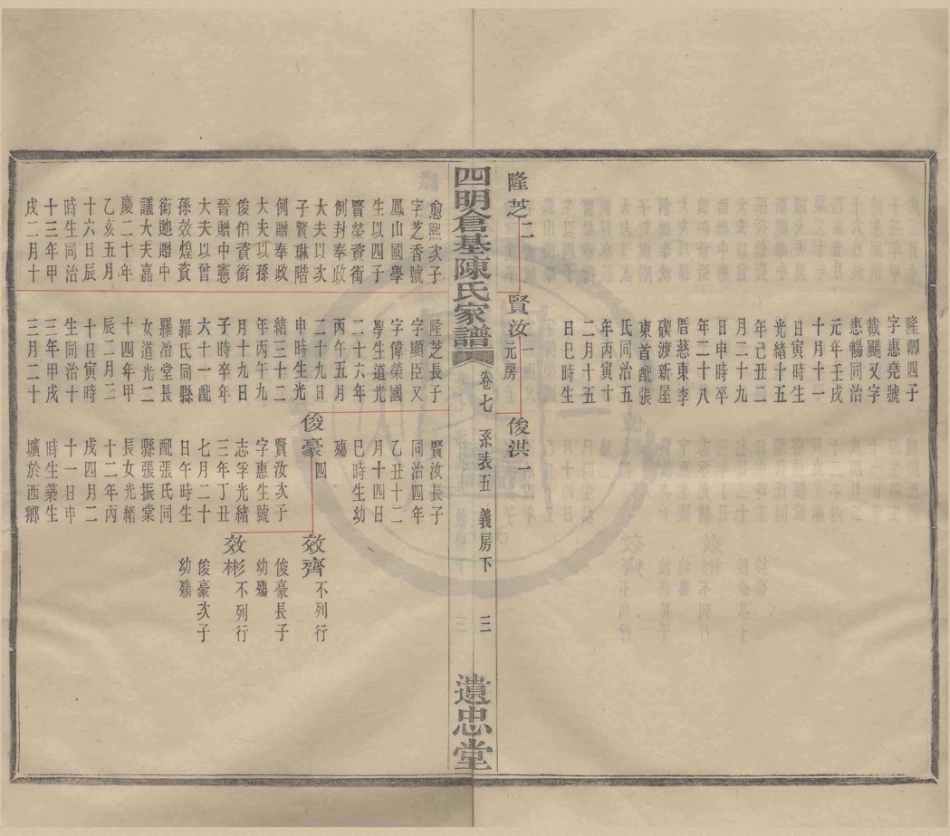 隆卿四子
字惠堯號
載颺又字
惠暢同治
元年壬戌
十月十一
日寅時生
光緒十五
年己丑二
月二十九
日申時卒
年二十八
厝慈東李
碶渡新屋
東首配張
氏同治五
年丙寅十
二月十五
日巳時生
隆芝二
賢汝一 元房
俊洪一
四明倉基陳氏家譜
卷七 系表五 義房下 三
遺忠堂
愈熙次子
字芝香號
鳳山國學
生以四子
賢榮資銜
例封奉政
大夫以次
子賢琳階
例贈奉政
大夫以孫
俊伯資銜
晉贈中憲
大夫以曾
孫效煌資
銜貤贈中
議大夫嘉
慶二十年
乙亥五月
十六日辰
時生同治
十三年甲
戌二月十
隆芝長子
字顯臣又
字偉榮國
學生道光
二十六年
丙午五月
二十九日
申時生光
緒三十二
年丙午九
月十九日
子時卒年
六十一配
羅氏同縣
羅冶堂長
女道光二
十四年甲
辰二月三
十日寅時
生同治十
三年甲戌
三月二十
賢汝長子
同治四年
乙丑十二
月十四日
巳時生幼
殤
俊豪四
賢汝次子
字惠生號
志孚光緒
三年丁丑
七月二十
日午時生
配張氏同
縣張振棠
長女光緒
十二年丙
戌四月二
十一日申
時生葬生
壙於西鄉
效齊 不列行
俊豪長子
幼殤
效彬 不列行
俊豪次子
幼殤